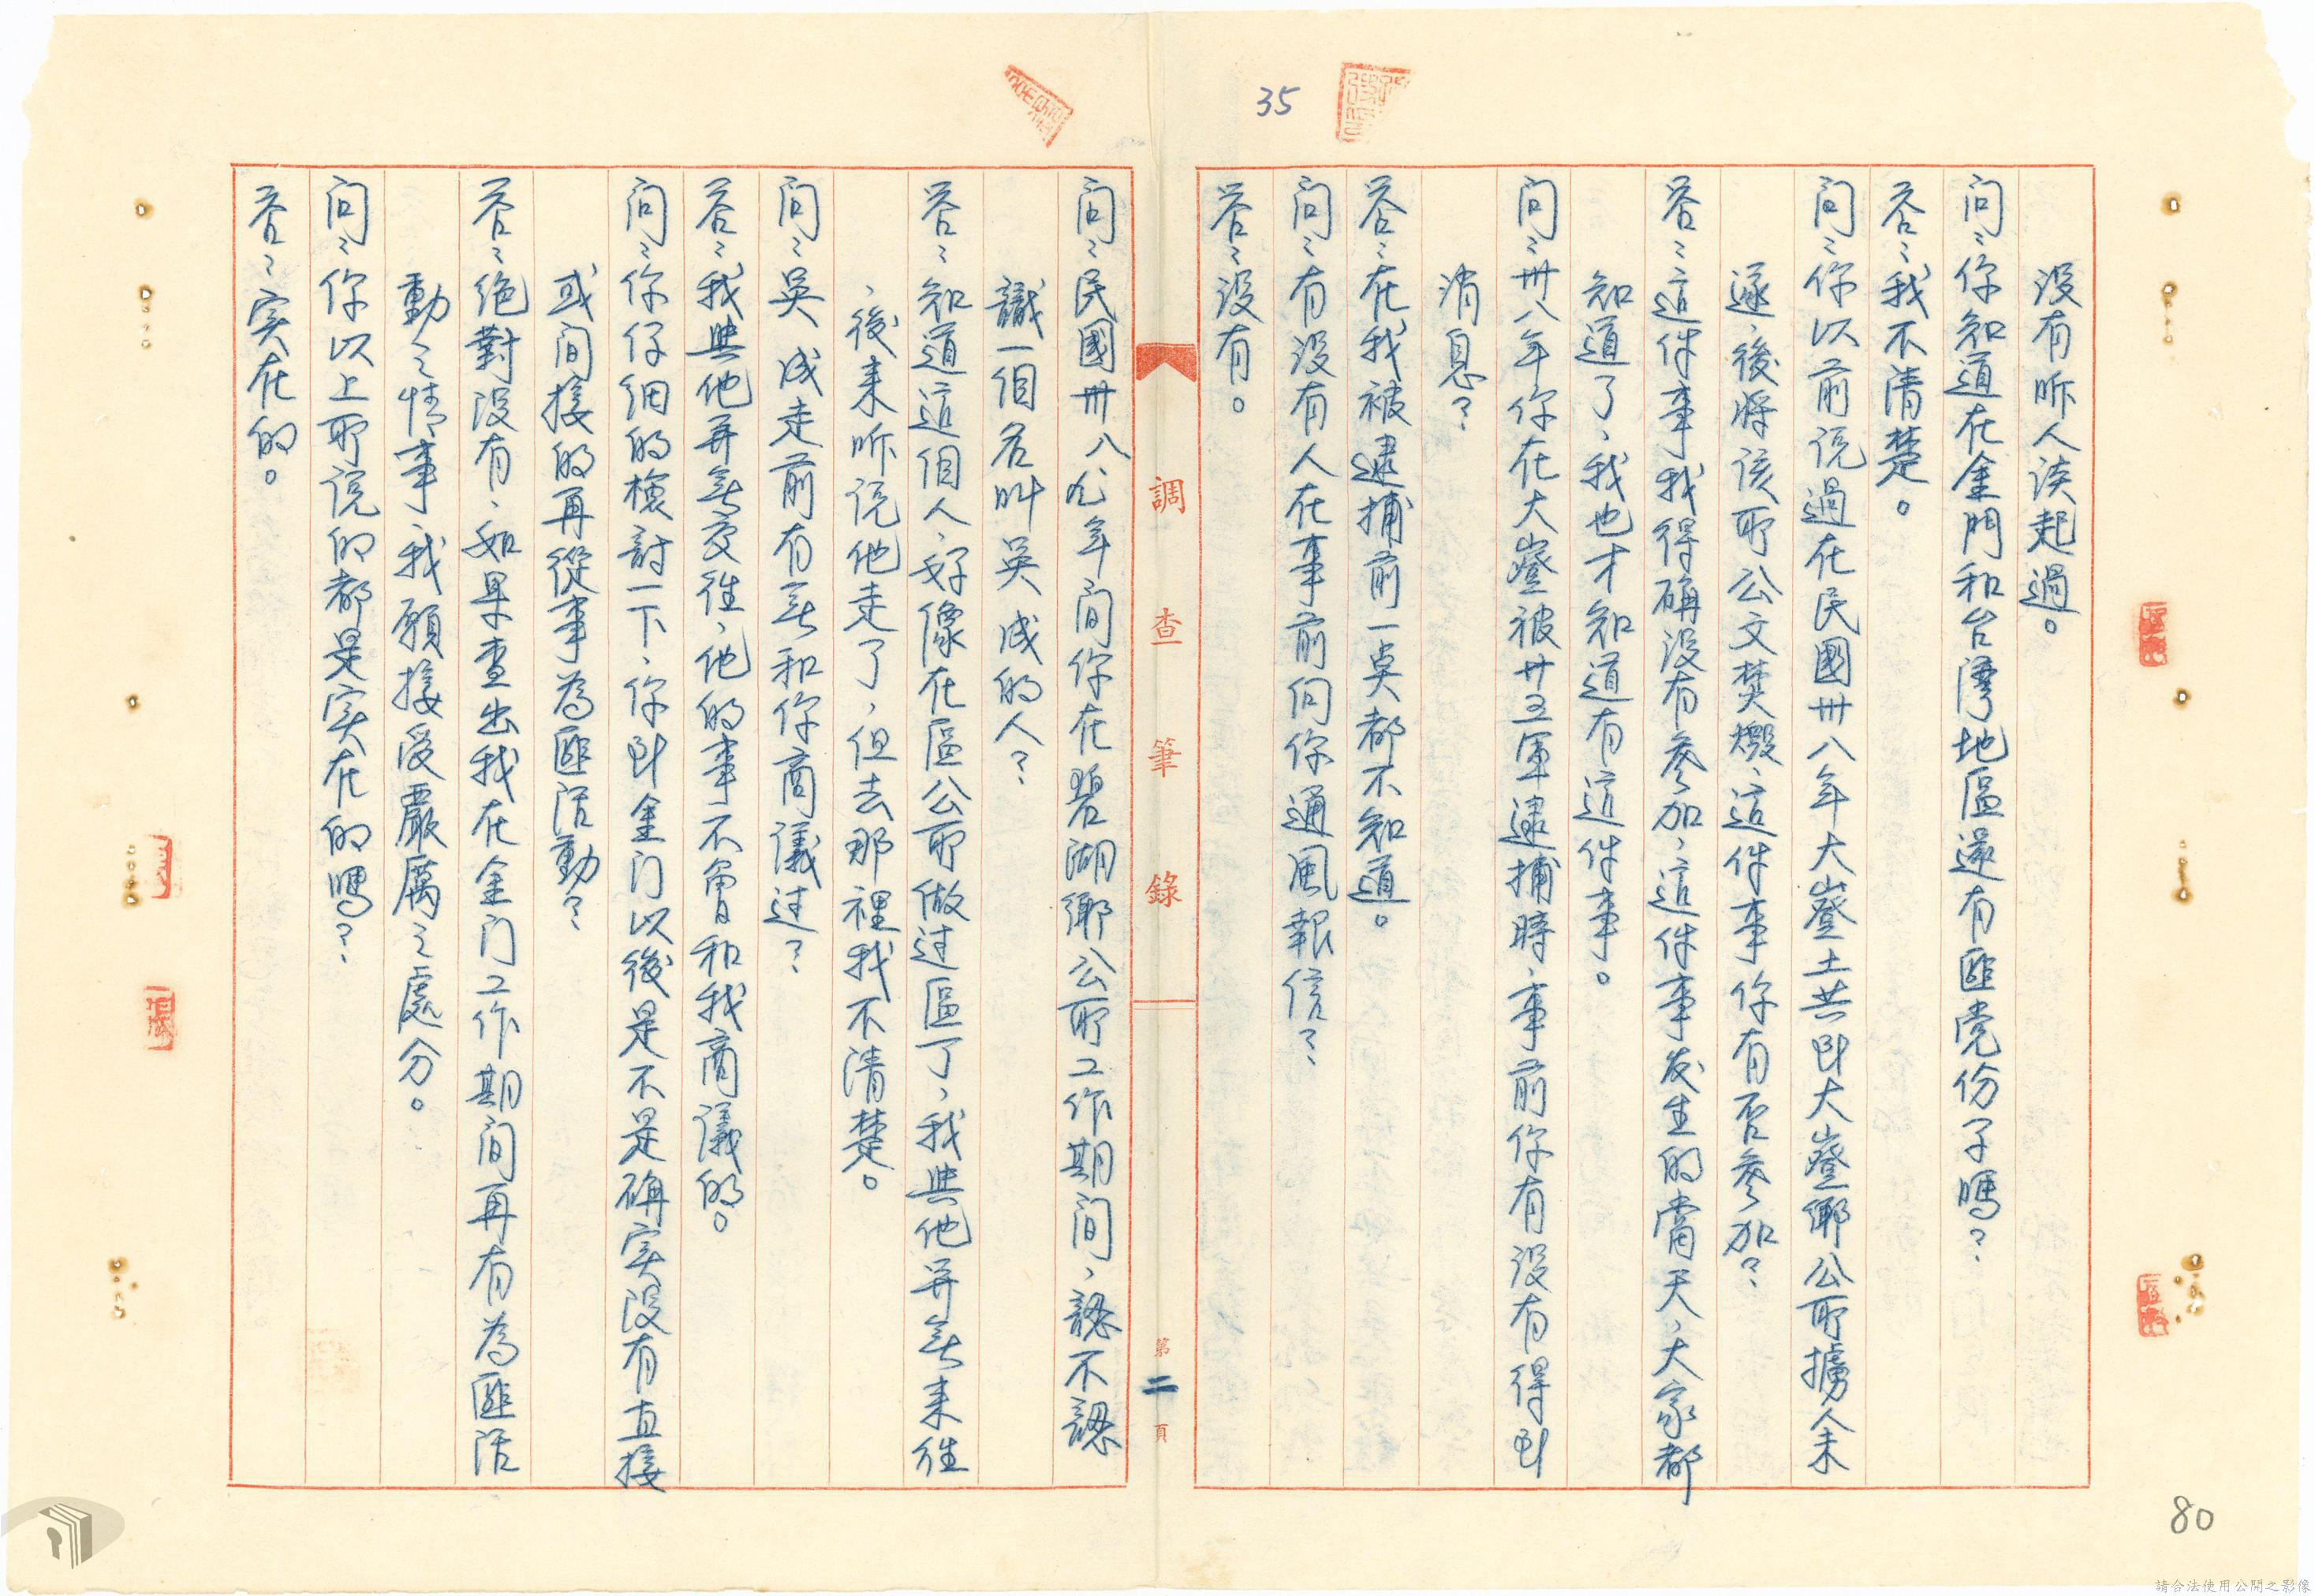 35
没有听人谈起過。
问：你知道在金門和台灣地區還有匪党份子嗎？
答：我不清楚。
问：你以前说過在民國卅八年大嶝土共到大嶝鄉公所擄人未
遂，後將该所公文焚燬，這件事你有否參加？
答：這件事我得确没有參加，這件事发生的當天，大家都
知道了，我也才知道有這件事。
问：卅八年你在大嶝被廿五軍逮捕時，事前你有没有得到
消息？
答：在我被逮捕前一臭都不知道。
问：有没有人在事前向你通風報信？
答：没有。
調查筆錄
第二頁
问：民國卅八九年间你在碧湖鄉公所工作期间，認不認
識一個名叫吳成的人？
答：知道這個人，好像在區公所做过區丁，我與他並無来往
，後来听说他走了，但去那裡我不清楚。
问：吳成走前有無和你商議过？
答：我與他並無交往，他的事不會和我商議的。
问：你仔细的檢討一下，你到金门以後是不是确实没有直接
或间接的再從事為匪活動？
答：绝對没有，如果查出我在金门工作期间再有為匪活
動之情事，我願接受嚴厲之處分。
问：你以上所说的都是实在的嗎？
答：实在的。
80
請合法使用公開之影像